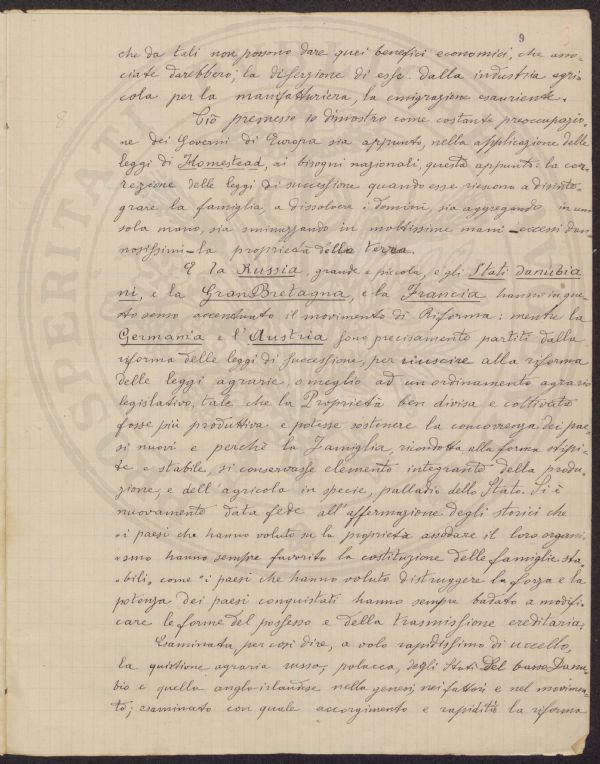 9
che da tali non possono dare quei benefici economici, che asso-
ciate darebbero; la diserzione di esse dalla industria agri
cola per la manifatturiera, la emigrazione esauriente.
Ciò premesso io dimostro come costante preoccupazio
ne dei Governi di Europa sia appunto, nella applicazione delle
leggi di Homestead, ai bisogni nazionali, questa appunto: la cor-
rezione delle leggi di successione quando esse riescono a disinte-
grare la famiglia, a dissolvere i domini, sia aggregando in una
sola mano, sia sminuzzando in moltissime mani - eccessi dan
nosissimi - la proprietà della terra.
E la Russia, grande e piccola, e gli Stati danubia
ni, e la Gran Bretagna, e la Francia hanno in que-
sto senso accentuato il movimento di Riforma: mentre la
Germania e l'Austria sono precisamente partiti dalla
riforma delle leggi di successione, per riuscire alla riforma
delle leggi agrarie, o meglio ad un ordinamento agrario
legislativo, tale che la Proprietà ben divisa e coltivata
fosse più produttiva e potesse sostenere la concorrenza dei pae-
si nuovi e perchè la Famiglia, ricondotta alla forma stipi-
te e stabile, si conservasse elemento integrante della produ-
zione, e dell'agricola in specie, palladio dello Stato. Si è
nuovamente data fede all'affermazione degli storici che
"i paesi che hanno voluto su la proprietà assodare il loro organi-
"smo hanno sempre favorito la costituzione delle famiglie sta-
"bili, come "i paesi che hanno voluto distruggere la forza e la
potenza dei paesi conquistati hanno sempre badato a modifi-
care le forme del possesso e della trasmissione ereditaria;
Esaminata, per così dire, a volo rapidissimo di uccello,
la quistione agraria russa, polacca, degli Stati del basso Danu-
bio e quella anglo-irlandese nella genesi, nei fattori e nel movimen-
to; esaminato con quale accorgimento e rapidità la riforma